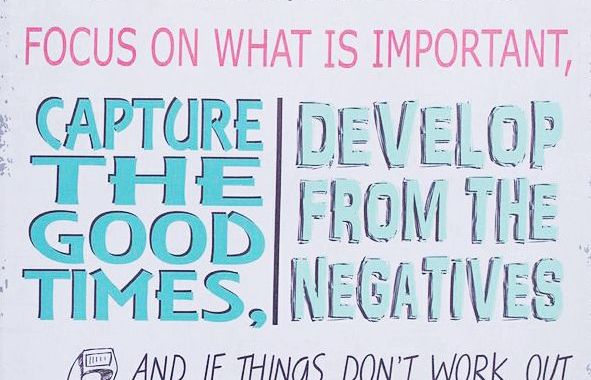 FOCUS ON WHAT IS IMPORTANT,
CAPTURE
THE
GOOD
TIMES,
DEVELOP
FROM THE
NEGATIVES
AND IF THINGS DON'T WORK OUT